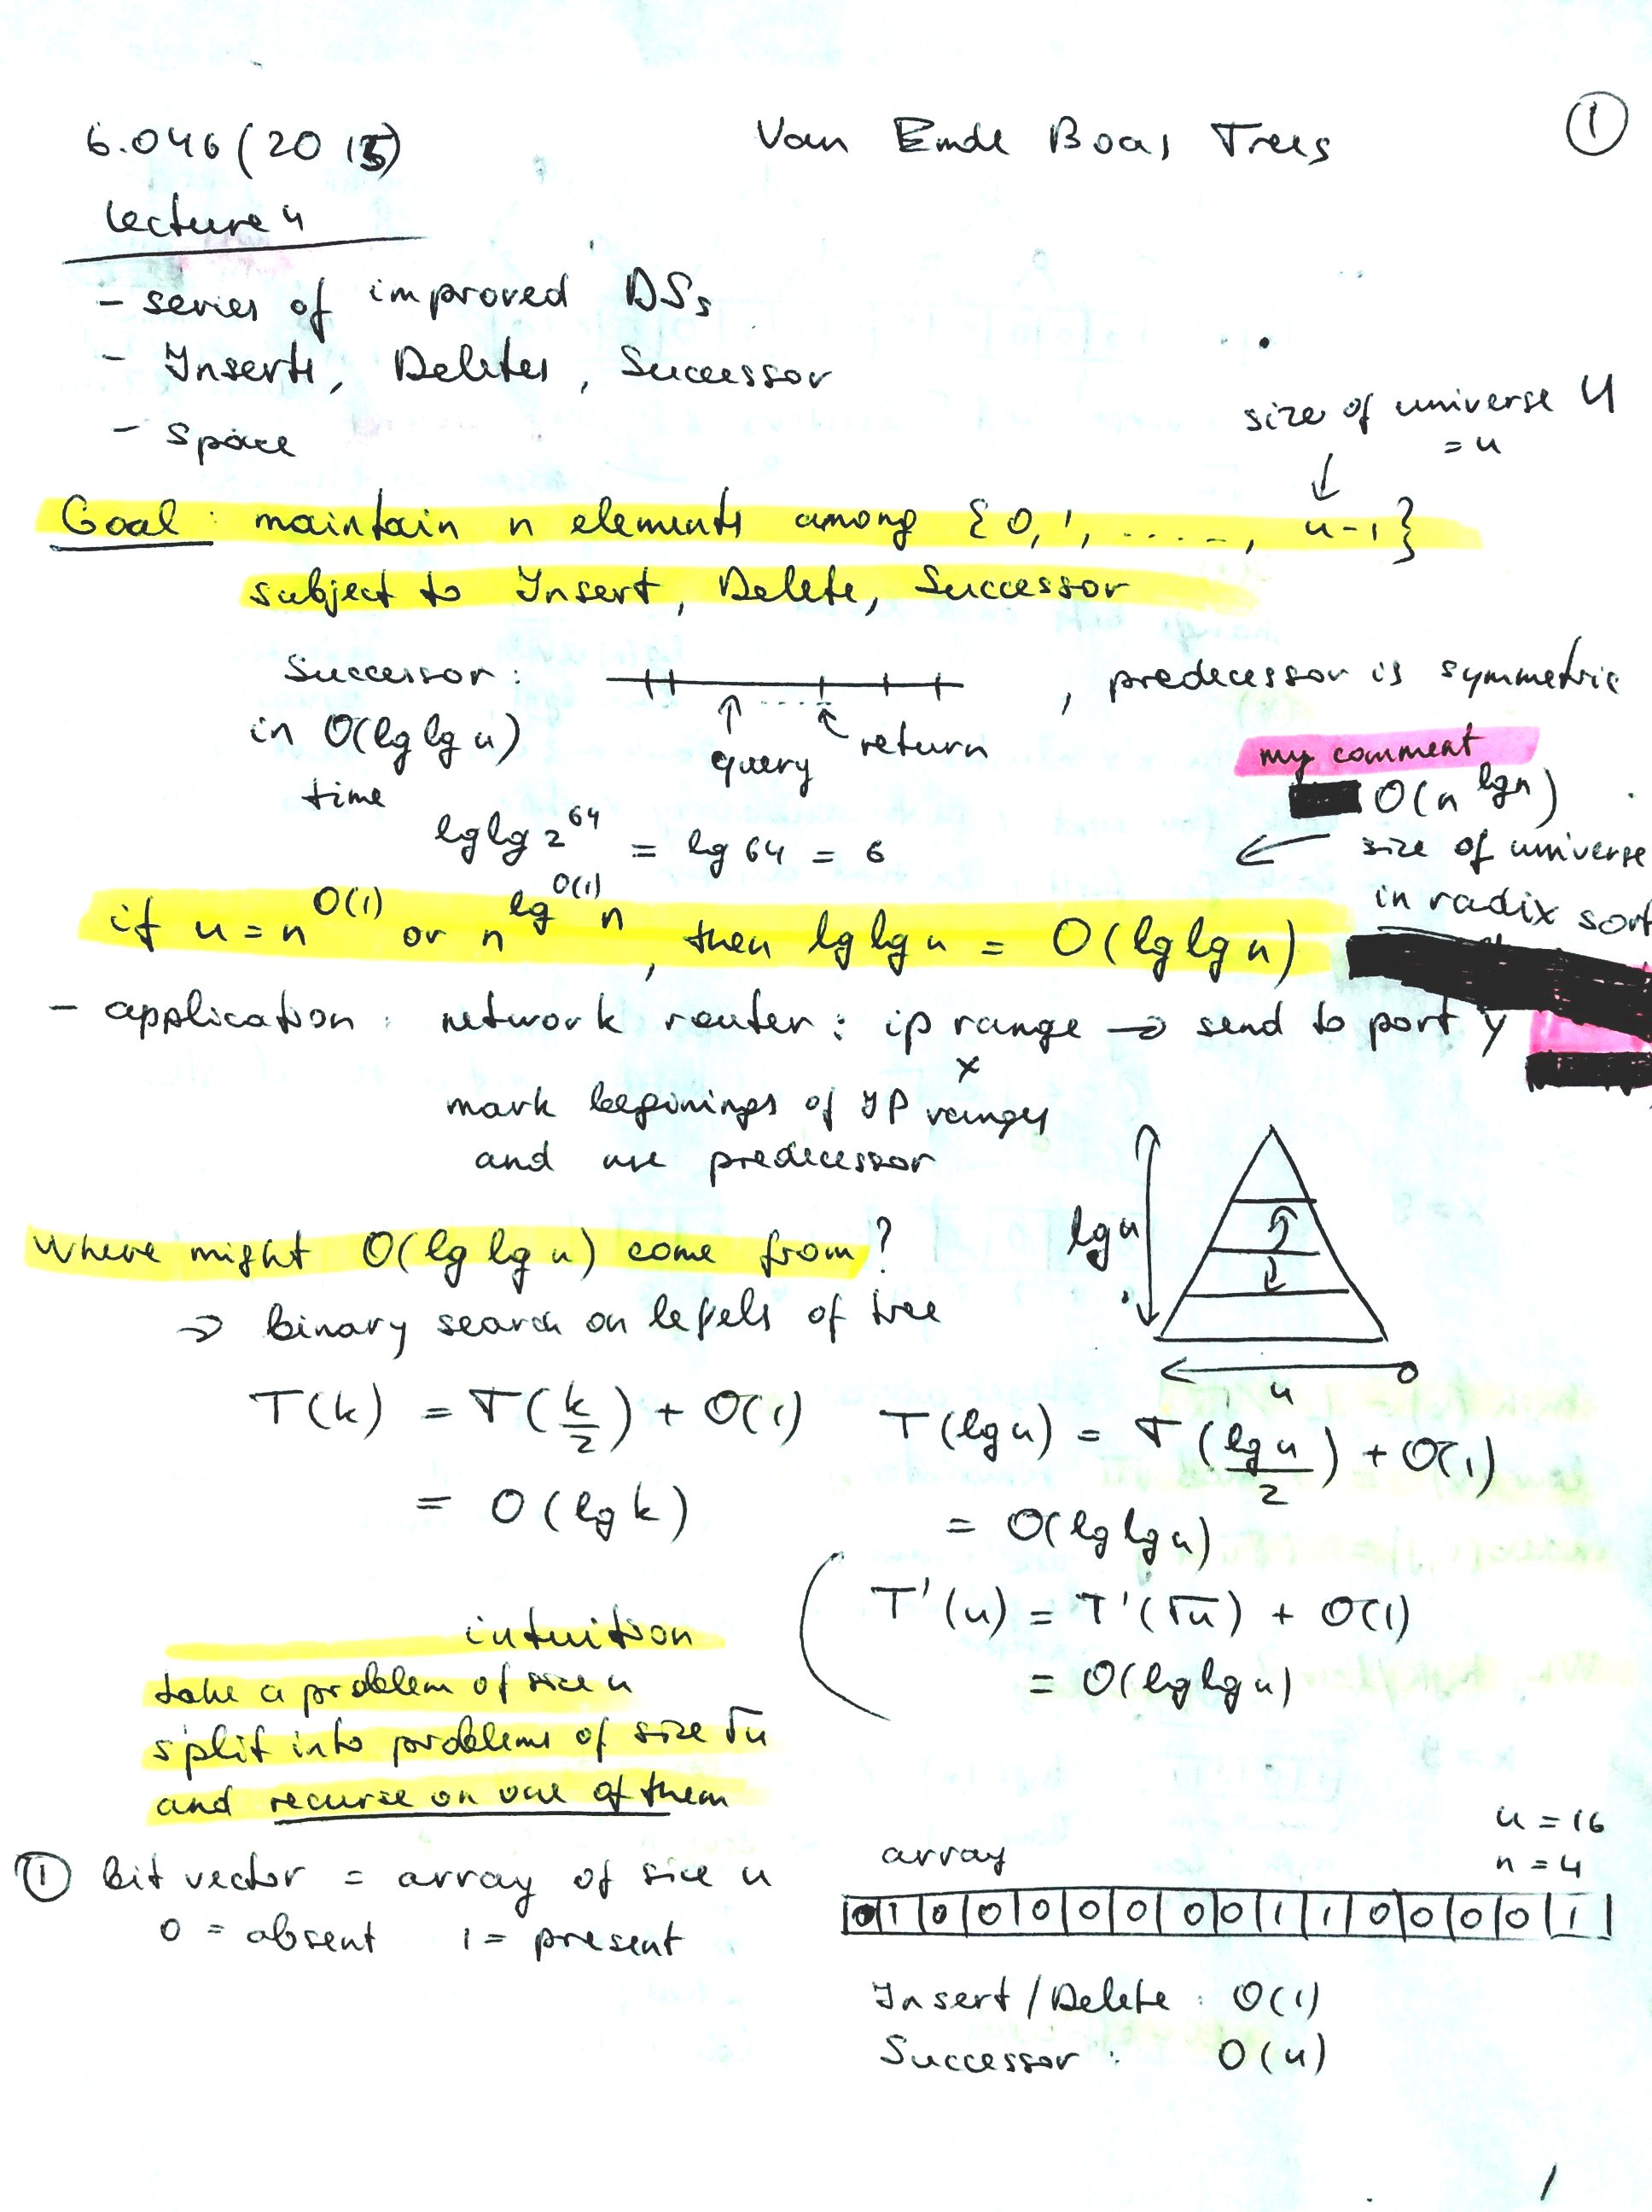 6.046 (2015) Van Emde Boas Trees ①
Lecture 4
- series of improved DSs
- Inserts, Deletes, Successor
- space
size of universe U
= u
Goal: maintain n elements among {0, 1, ....., u-1}
subject to Insert, Delete, Successor
Successor: , predecessor is symmetric
in O(lg lg u)
time
query
return
my comment
O(n^lg n)
size of universe
in radix sort
lg lg 2^64 = lg 64 = 6
if u = n^O(1) or n^lg^O(1) n, then lg lg u = O(lg lg n)
- application: network router: ip range → send to port y
x
mark beginings of IP ranges
and use predecessor
lg u
u
Where might O(lg lg u) come from?
⇒ binary search on levels of tree
T(k) = T(k/2) + O(1)
= O(lg k)
T(lg u) = T(lg u/2) + O(1)
= O(lg lg u)
T'(u) = T'(√u) + O(1)
= O(lg lg u)
intuition
take a problem of size u
split into problems of size √u
and recurse on one of them
① bit vector = array of size u
0 = absent 1 = present
array
u = 16
n = 4
0 1 0 0 0 0 0 0 0 1 1 0 0 0 0 1
Insert/Delete: O(1)
Successor: O(u)
1